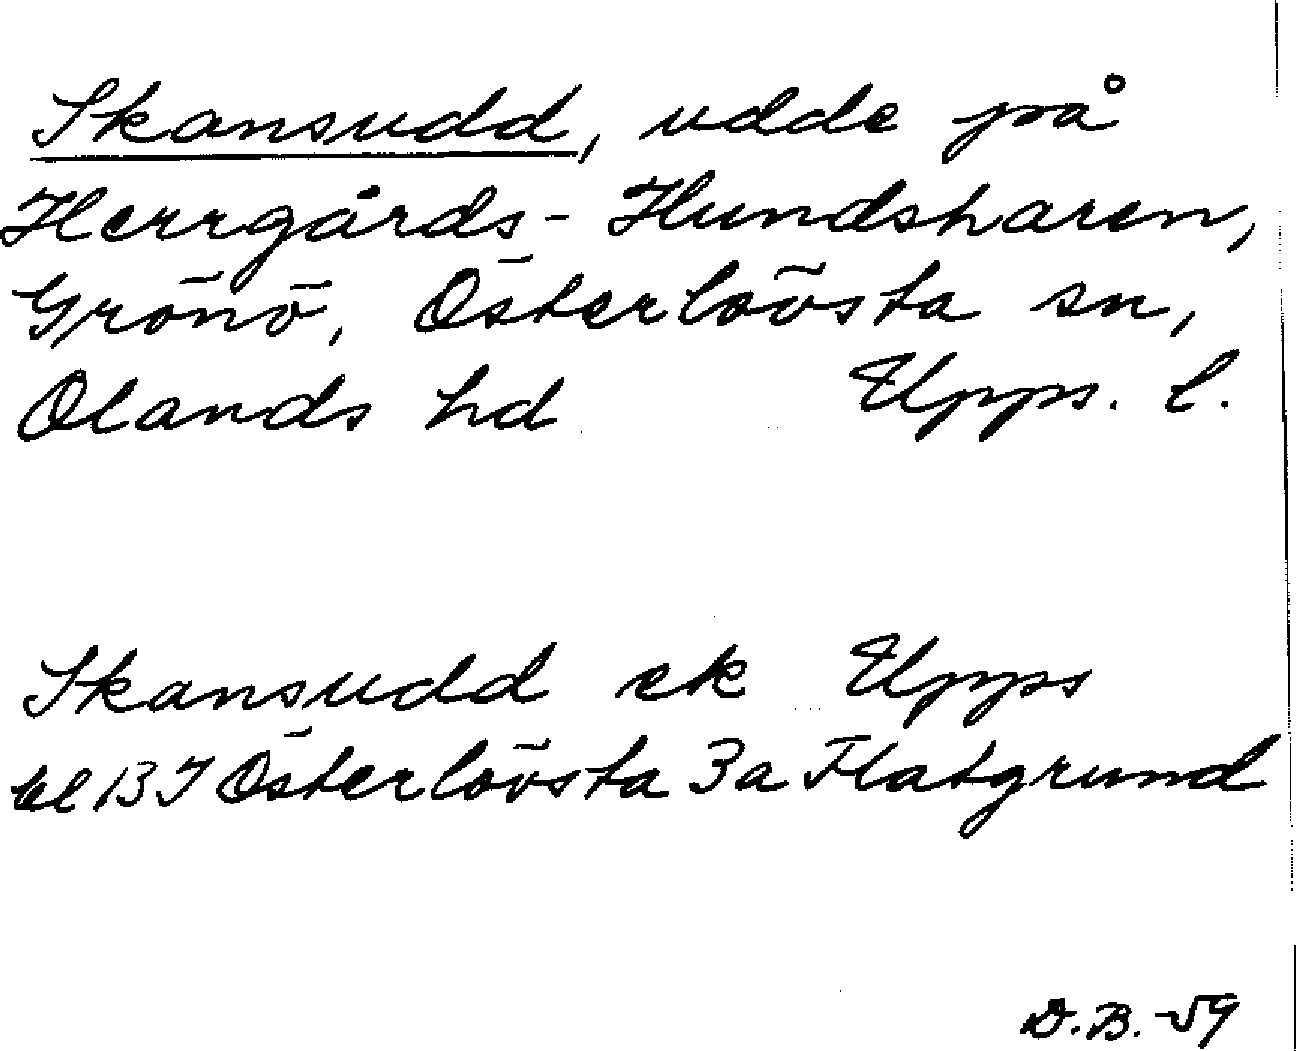 Skansudd, udde på
Herrgårds-Hundsharen,
Grönö, Österlövsta sn,
Olands hd Upps. l.
Skansudd ek Upps
bl 137 Österlövsta 3a Flatgrund
D.B.-59